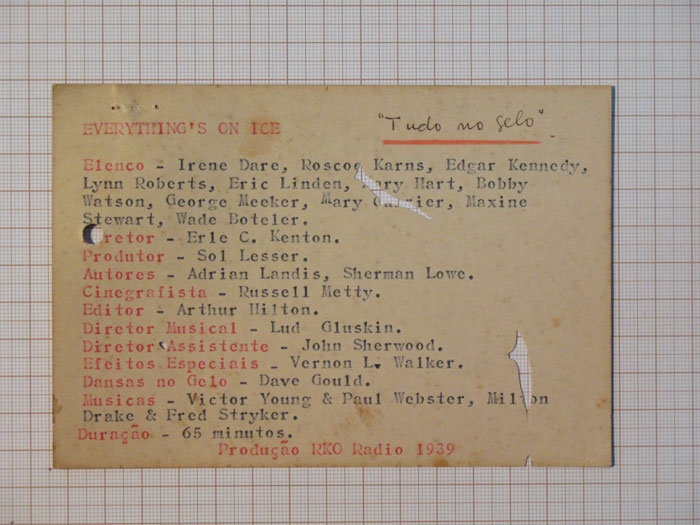 EVERYTHING'S ON ICE "Tudo no gelo"
Elenco - Irene Dare, Roscoe Karns, Edgar Kennedy,
Lynn Roberts, Eric Linden, Mary Hart, Bobby
Watson, George Meeker, Mary Maxine
Stewart, Wade Boteler.
Diretor - Erle C. Kenton.
Produtor - Sol Lesser.
Autores - Adrian Landis, Sherman Lowe.
Cinegrafista - Russell Metty.
Editor - Arthur Hilton.
Diretor Musical - Lud Gluskin.
Diretor Assistente - John Sherwood.
Efeitos Especiais - Vernon L. Walker.
Dansas no Gelo - Dave Gould.
Musicas - Victor Young & Paul Webster, Milton
Drake & Fred Stryker.
Duração - 65 minutos.
Produção RKO Radio 1939